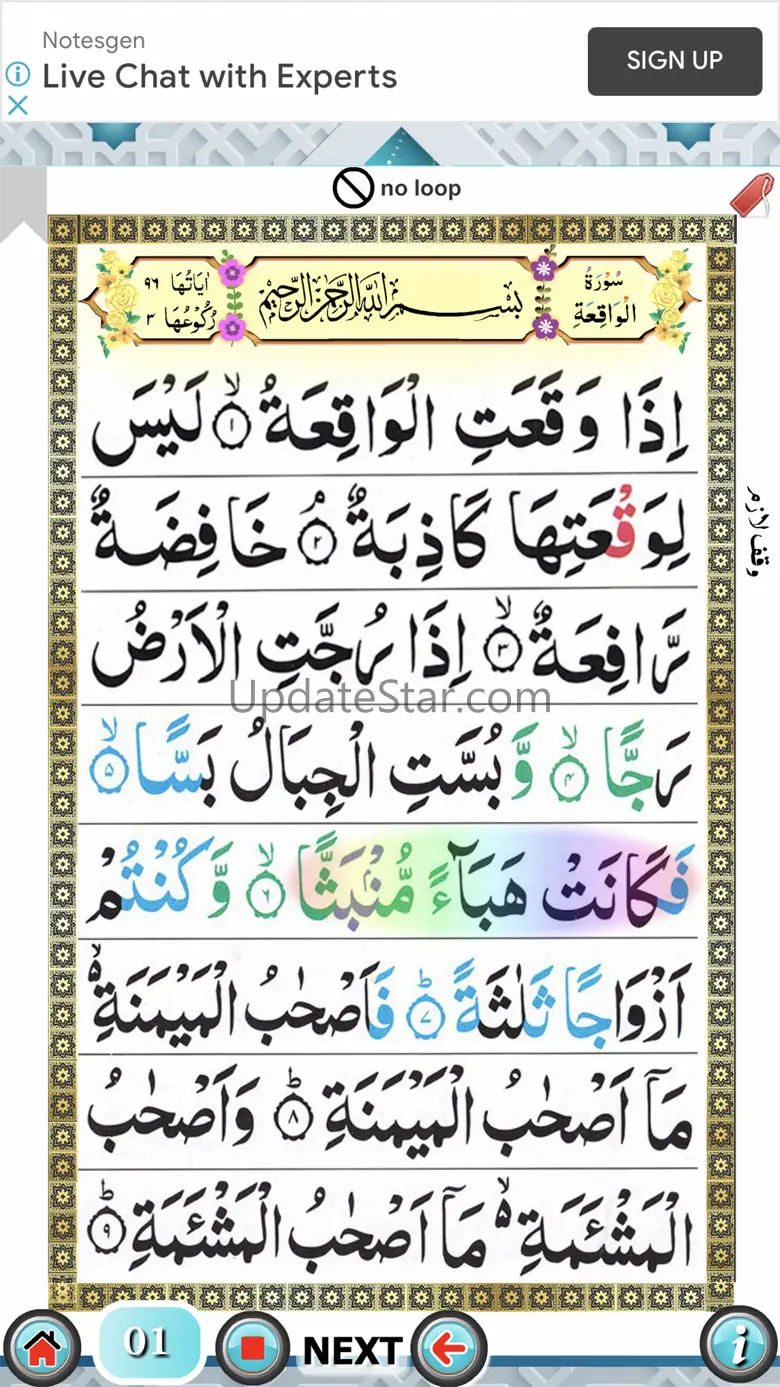 Notesgen
Live Chat with Experts
SIGN UP
no loop
سُوْرَةُ الْوَاقِعَةِ
بِسْمِ اللّٰهِ الرَّحْمٰنِ الرَّحِيْمِ
اٰيَاتُهَا ٩٦
رُكُوْعُهَا ٣
اِذَا وَقَعَتِ الْوَاقِعَةُ ۙ﴿١﴾ لَيْسَ
لِوَقْعَتِهَا كَاذِبَةٌ ۘ﴿٢﴾ خَافِضَةٌ
وقف لازم
رَّافِعَةٌ ۙ﴿٣﴾ اِذَا رُجَّتِ الْاَرْضُ
UpdateStar.com
رَجًّا ۙ﴿٤﴾ وَّ بُسَّتِ الْجِبَالُ بَسًّا ۙ﴿٥﴾
فَكَانَتْ هَبَآءً مُّنْۢبَثًّا ۙ﴿٦﴾ وَّ كُنْتُمْ
اَزْوَاجًا ثَلٰثَةً ؕ﴿٧﴾ فَاَصْحٰبُ الْمَيْمَنَةِ ۙ۬
مَاۤ اَصْحٰبُ الْمَيْمَنَةِ ؕ﴿٨﴾ وَاَصْحٰبُ
الْمَشْـَٔمَةِ ۙ۬ مَاۤ اَصْحٰبُ الْمَشْـَٔمَةِ ؕ﴿٩﴾
01
NEXT
i